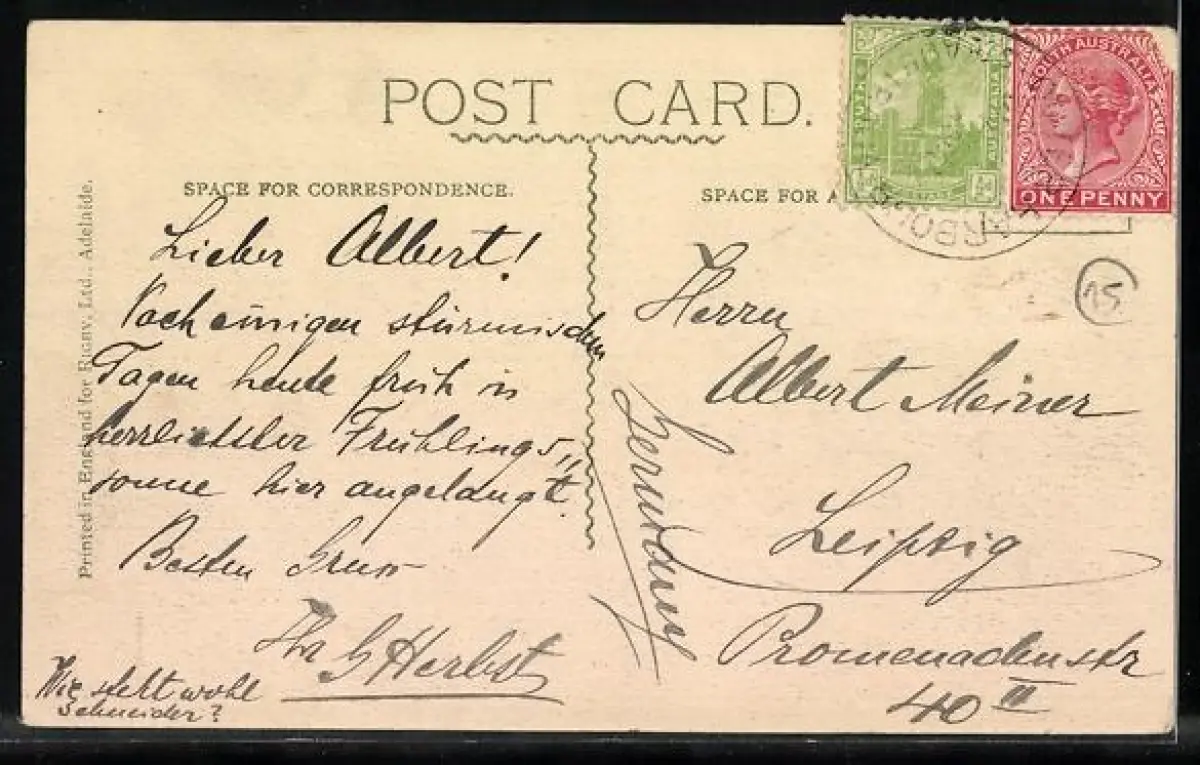 POST CARD.
SPACE FOR CORRESPONDENCE.
SPACE FOR A
Printed in England for RIGBY, Ltd., Adelaide.
SOUTH
AUSTRALIA
½d
½d
SOUTH AUSTRALIA
ONE PENNY
15
Lieber Albert!
Nach einigen stürmischen
Tagen heute früh in
herrlichster Frühlings„
sonne hier angelangt.
Besten Gruss
Ihr G Herbst
Wie steht wohl
Schneider?
Herrn
Albert Meiner
Leipzig
Promenadenstr
40 II
Germany